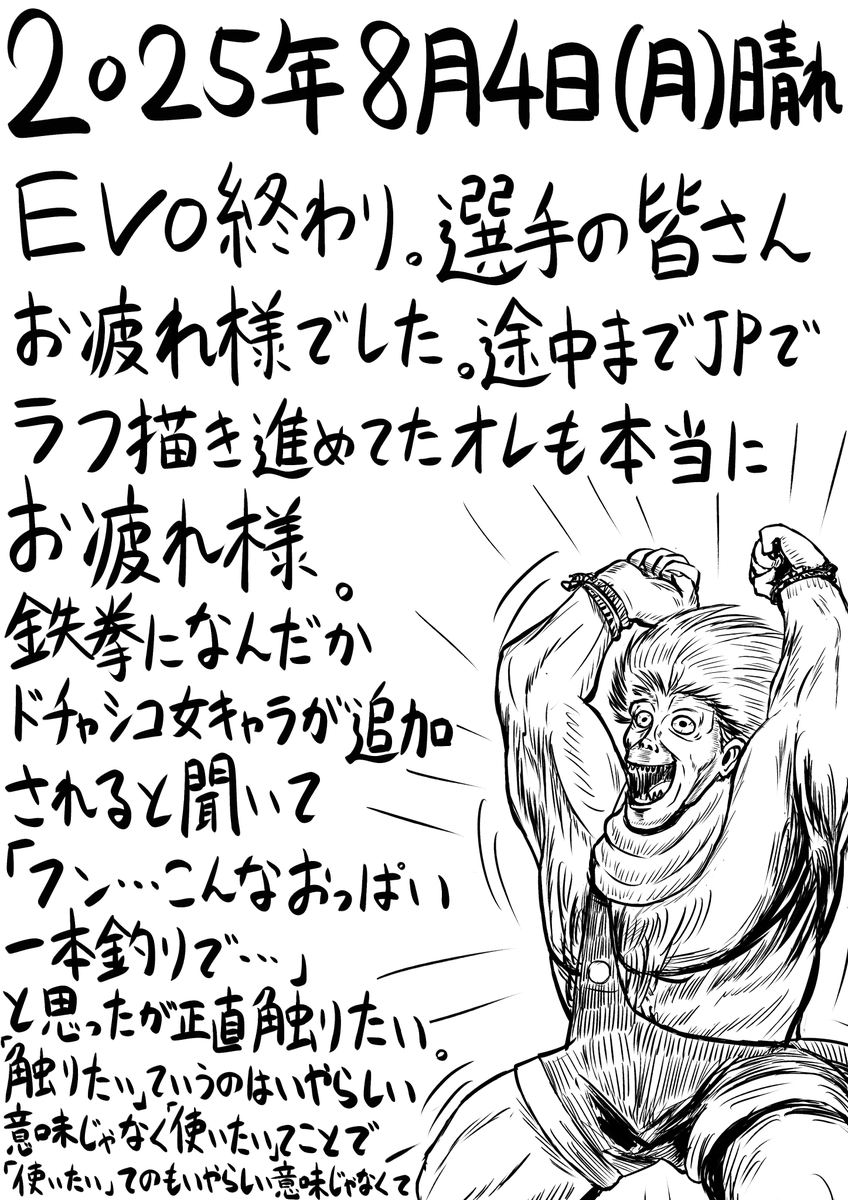 2025年8月4日(月)晴れ
EVo終わり。選手の皆さん
お疲れ様でした。途中までJPで
ラフ描き進めてたオレも本当に
お疲れ様。
鉄拳になんだか
ドチャシコ女キャラが追加
されると聞いて
「フン…こんなおっぱい
一本釣りで…」
と思ったが正直触りたい。
「触りたい」ていうのはいやらしい
意味じゃなく「使いたい」てことで
「使いたい」てのもいやらしい意味じゃなくて